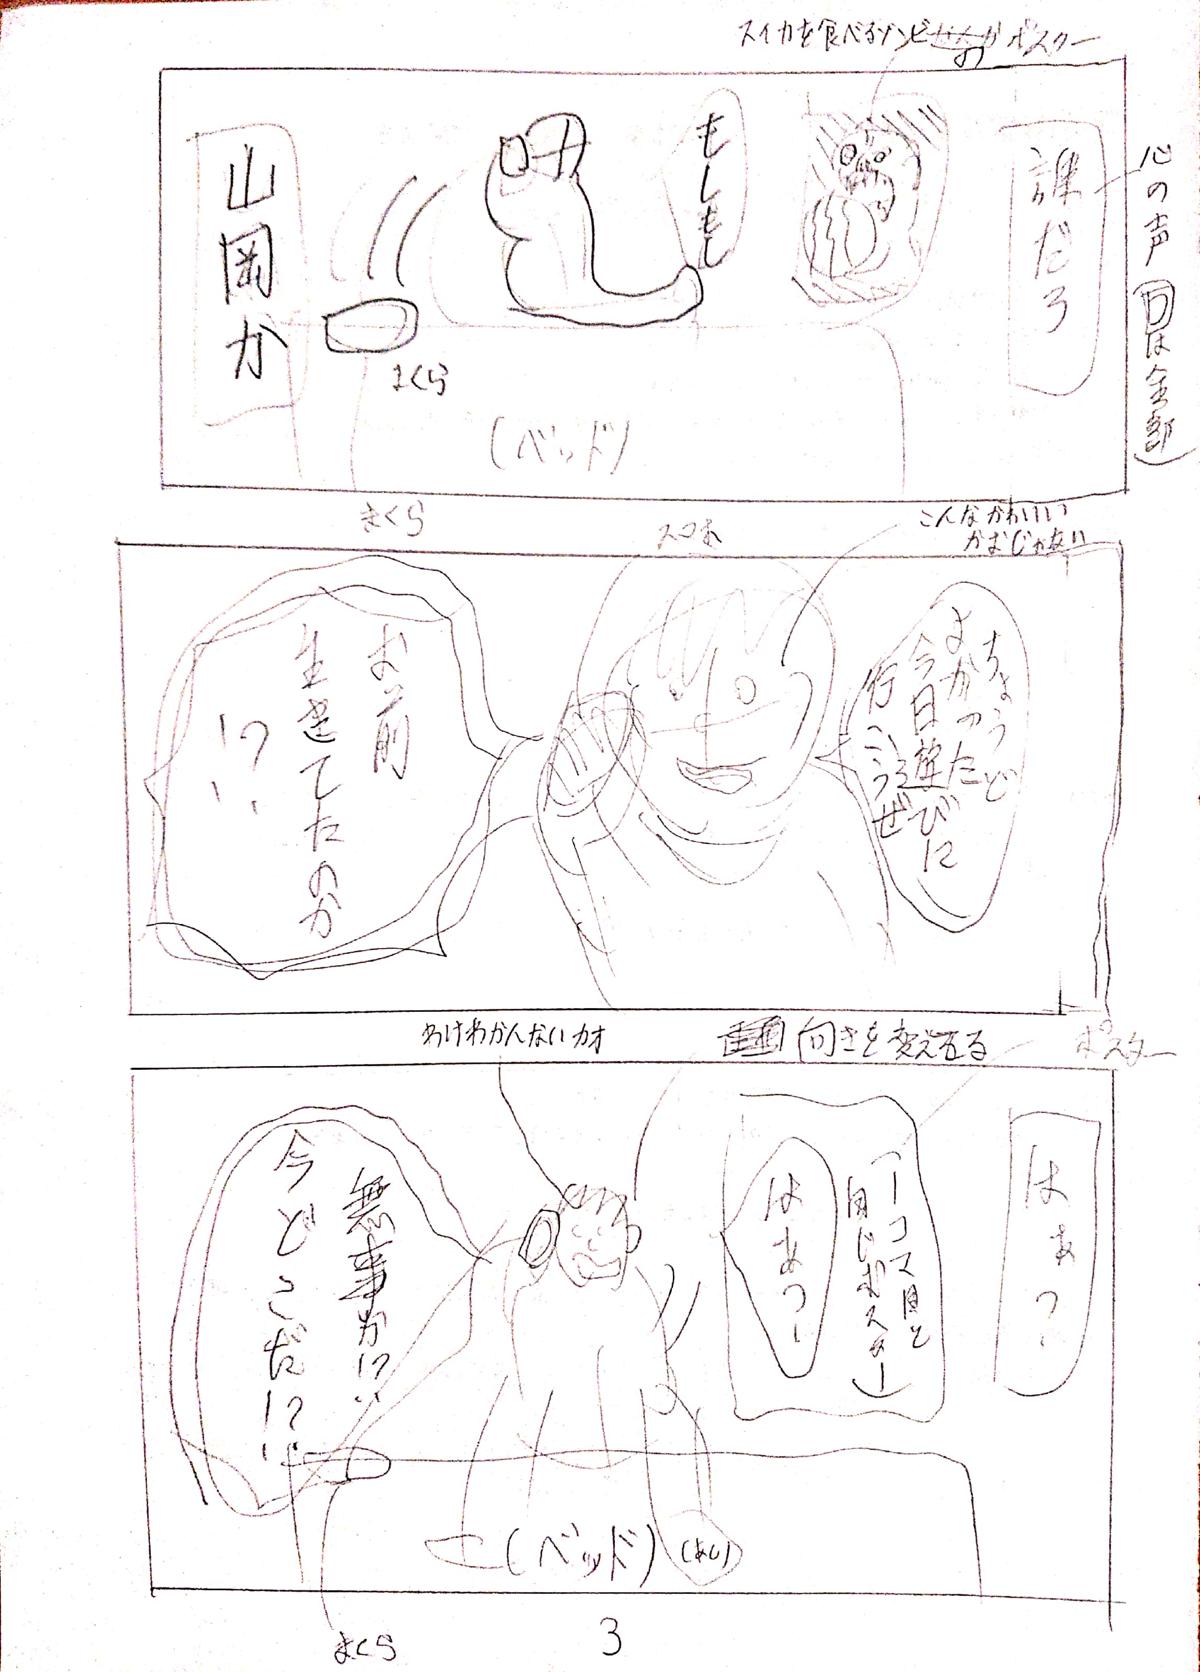 スイカを食べるゾンビのポスター
誰だろ
心の声(□は全部)
もしもし
山岡か
まくら
(ベッド)
まくら
スマホ
こんなかわいい
かおじゃない
ちょうど
よかった
今日遊びに
行こうぜ
お前
生きてたのか
!?
わけわかんないカオ
向きを変えてる
ポスター
はぁ?
(一コマ目と
同じポスター)
はあっー
無事か!?
今どこだ!?
(ベッド)
(あし)
まくら
3